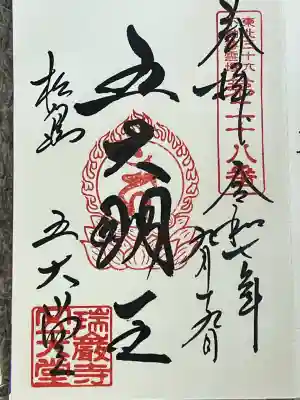 東北三十六不動尊霊場
二十八番
奉拝
令和七年
九月十九日
五大明王
松島
五大堂
瑞巌寺
五大堂